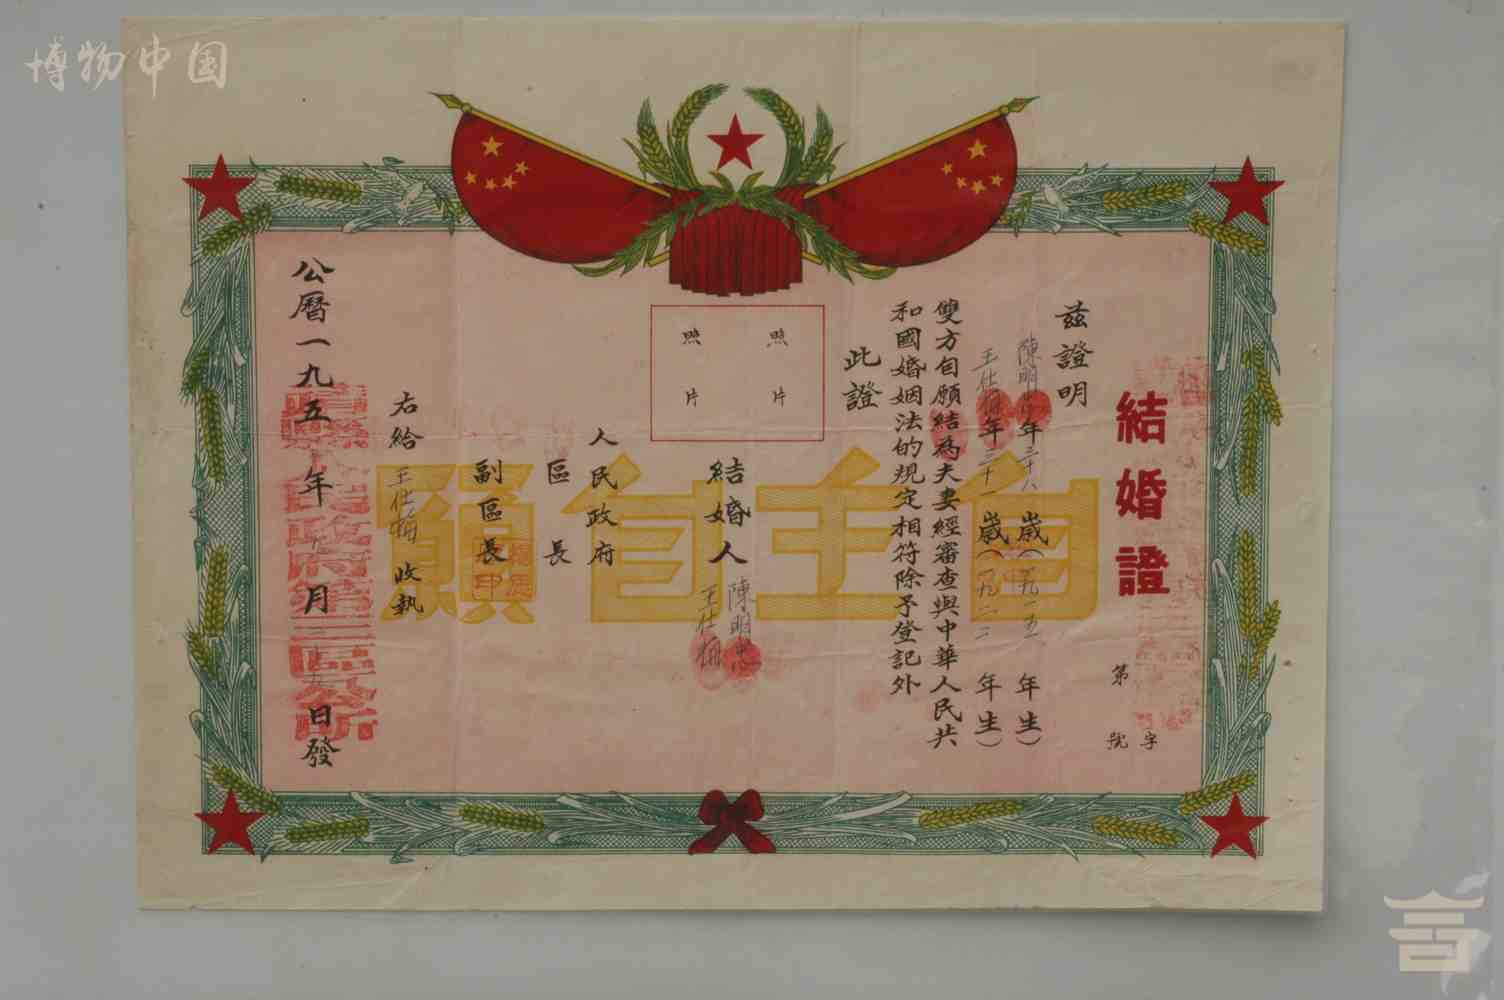 博物中国
自主自願
結婚證
第 字
號
茲證明
陳明忠年三十八歲(一九一五年生)
王仕梅年三十一歲(一九二二年生)
雙方自願結為夫妻經審查與中華人民共
和國婚姻法的規定相符除予登記外
此證
照片
照片
結婚人 陳明忠
王仕梅
人民政府
區長
副區長
右給王仕梅收執
公曆一九五 年 月 日發
人民政府第三區公所